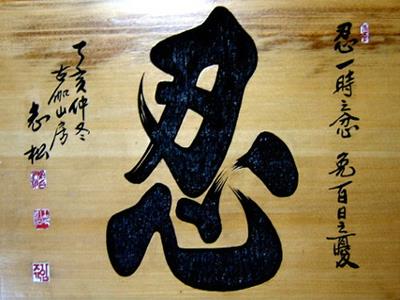 忍
忍一時之忿 免百日之憂
丁亥仲冬
古伽山房
志松